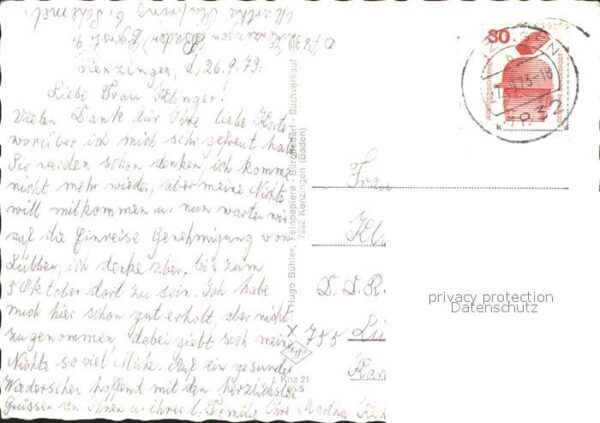 Kenzingen, d. 26.9.73.
Liebe Frau
Vielen Dank für Ihre liebe Karte
worüber ich mich sehr gefreut habe
Sie werden schon denken, ich komme
nicht mehr wieder, aber meine Nichte
will mitkommen u. nun warten wir
auf die Einreise Genehmigung von
Lübben, ich denke aber, bis zum
5 Oktober dort zu sein. Ich habe
mich hier schon gut erholt, aber nicht
zugenommen, dabei giebt sich meine
Nichte so viel Mühe. Auf ein gesundes
Wiedersehen hoffend mit den herzlichsten
Grüssen an Ihnen u. ihrer l. Familie Ihre Martha
Hugo Bühler, Feinpapiere - Bürobedarf - Buchverkauf
7832 Kenzingen (Baden)
Knz 21
30
7832
Frau
D. D. R.
x 755 Lü
privacy protection
Datenschutz